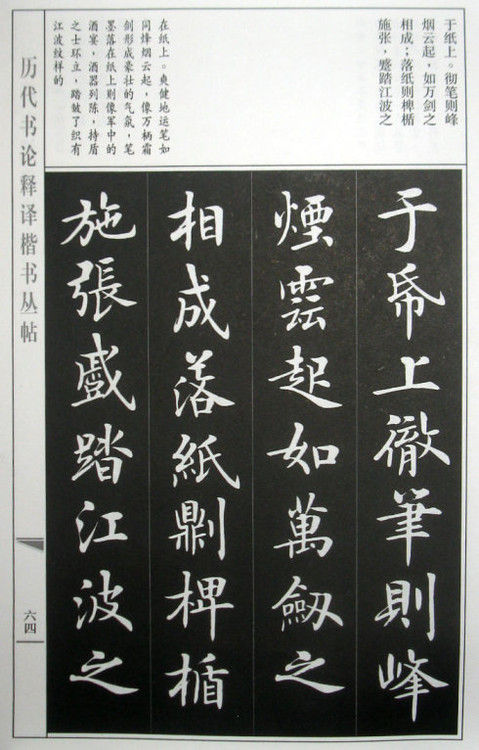 于纸上。彻笔则峰
烟云起，如万剑之
相成；落纸则椑楯
施张，蹙踏江波之
在纸上。爽健地运笔如
同烽烟云起，像万柄霜
剑形成豪壮的气氛，笔
墨落在纸上则像军中的
酒宴，酒器列陈，持盾
之士环立，踏皱了织有
江波纹样的
于帋上徹筆則峰
煙雲起如萬劒之
相成落紙𠟭椑楯
施張蹙踏江波之
历代书论释译楷书丛帖
六四